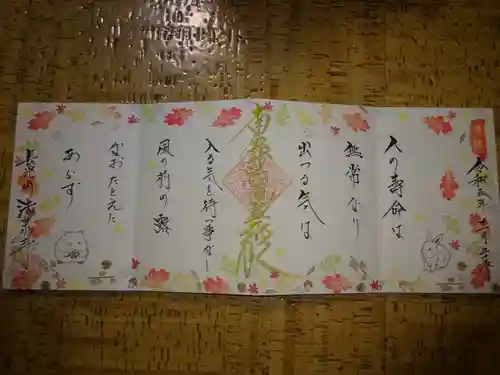 奉拝
令和五年
人の寿命は
無常なり
出つる気は
南無妙法蓮華経
入る気を待つ事なし
風の前の露
なおたとえに
あらず